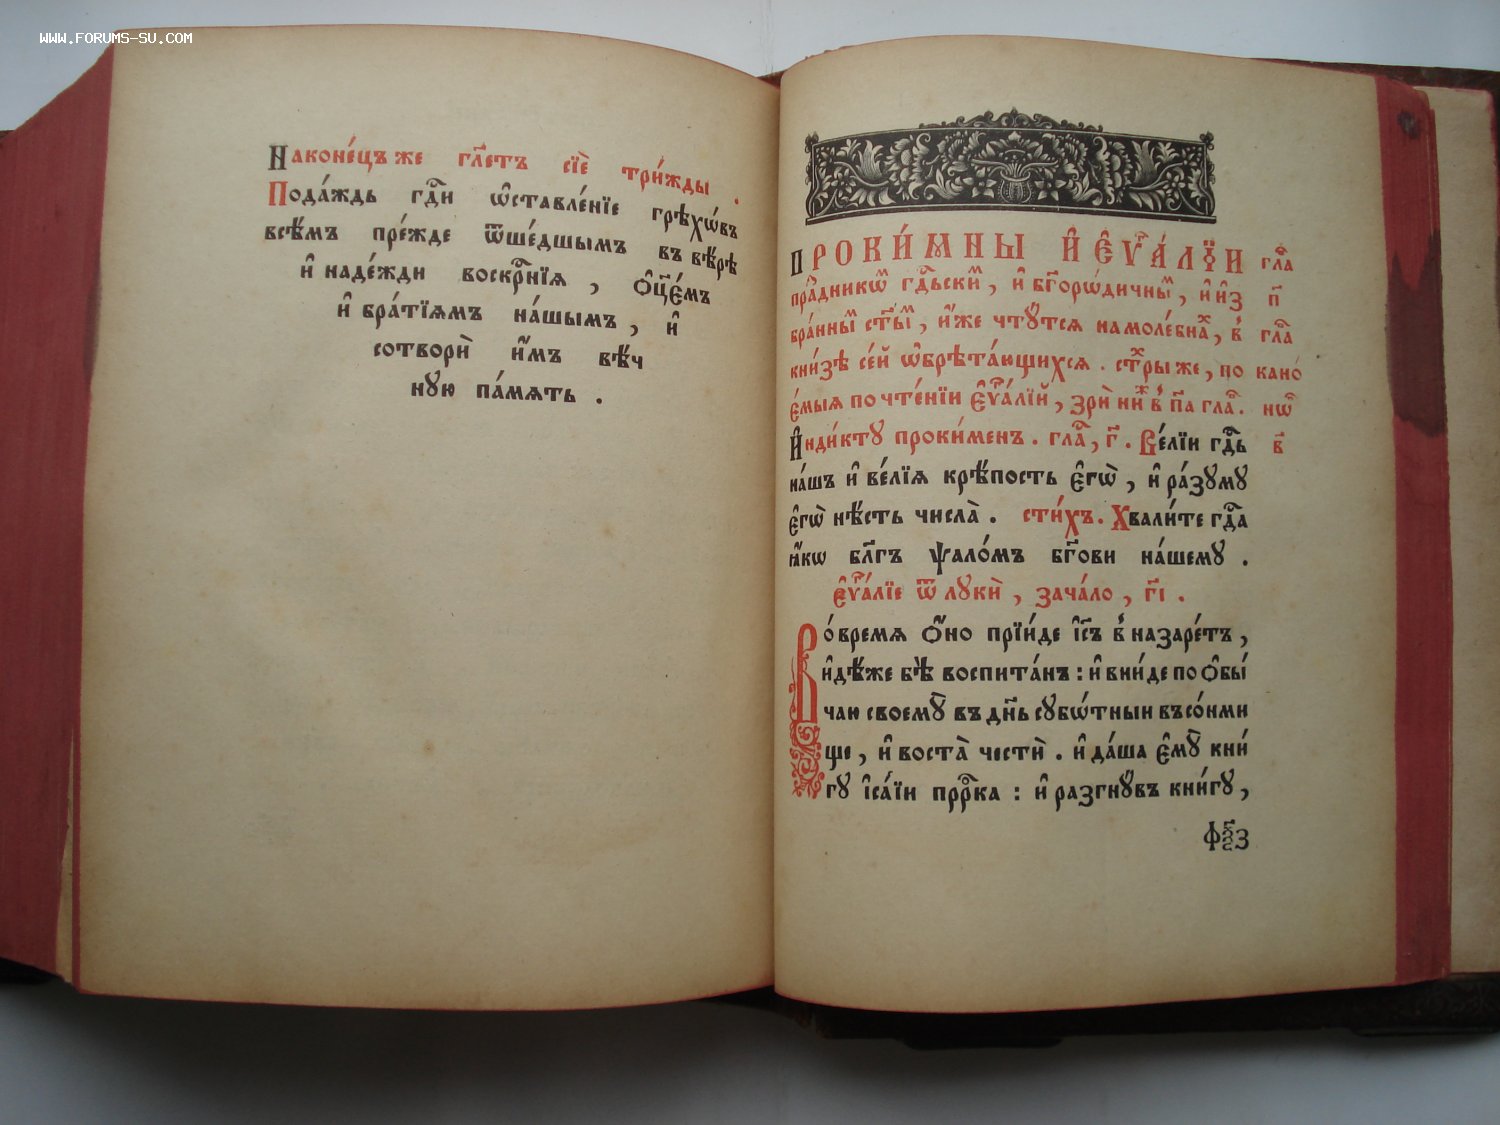 WWW.FORUMS-SU.COM
Наконе́цъ же гл҃етъ сїѐ три́жды .
Пода́ждь гдⷭ҇и ѡ҆ставле́нїе грѣхѡ́въ
всѣ́мъ пре́жде ѿше́дшымъ въ вѣ́рѣ
и҆ наде́жди воскрⷭ҇нїѧ , ѻ҆ц҃е́мъ
и҆ бра́тїѧмъ на́шымъ , и҆
сотворѝ и҆̀мъ вѣ́ч
ную па́мѧть .
Проки́мны и҆ є҆ѵⷢ҇а́лїи
гдⷭ҇ьски̑ⷨ , и҆ бг҃оро́дичныⷨ , и҆ и҆з
бра́нныⷨ ст҃ы́ⷨ , и҆́же чту́тсѧ на моле́бнаⷯ , в̾
кни́зѣ се́й ѡ҆брѣта́ющихсѧ . стⷯры же , по
е́мыѧ по чте́нїи є҆ѵⷢ҇а́лїй , зрѝ ниⷤ в̾ п҃а глаⷡ҇ .
глаⷡ҇а
п҃
глаⷡ҇а
кано
нѡⷡ҇
в҃
И҆ндикту проки́менъ . глаⷭ҇ , г҃ . Ве́лїи гдⷭ҇ь
на́шъ и҆ ве́лїѧ крѣ́пость є҆гѡ̀ , и҆ ра́зуму
є҆гѡ̀ нѣ́сть числа̀ . стиⷯъ . Хвали́те гдⷭ҇а
ꙗ҆́кѡ бл҃гъ ѱало́мъ бг҃ови на́шему .
є҆ѵⷢ҇а́лїе ѿ лукѝ , зача́ло , г҃і .
Во́ времѧ ѻ҆́но прїи́де і҆с҃ъ в̾ назаре́тъ ,
и҆дѣ́же бѣ̀ воспита́нъ : и҆ вни́де по ѻ҆бы́
чаю своему̀ въ дн҃ь субѡ́тныи въ со́нми
ще , и҆ воста̀ честѝ . и҆ да́ша є҆му̀ кни́
гу і҆са́їи прⷪ҇рка : и҆ разгну́въ кни́гу ,